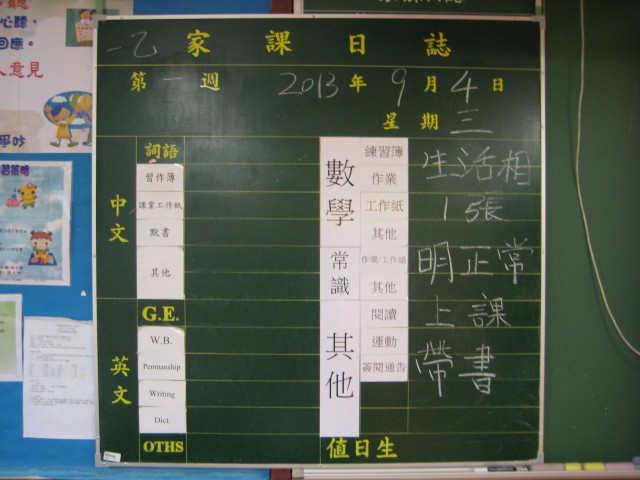 一乙家課日誌
第一週 2013年9月4日
星期三
中文
詞語
習作簿
課業工作紙
默書
其他
英文
G.E.
W.B.
Penmanship
Writing
Dict.
OTHS
數學
練習簿
作業
工作紙
其他
常識
作業/工作紙
其他
其他
閱讀
運動
簽閱通告
生活相
1張
明正常
上課
帶書
值日生
心聽，
回應。
人意見
爭吵